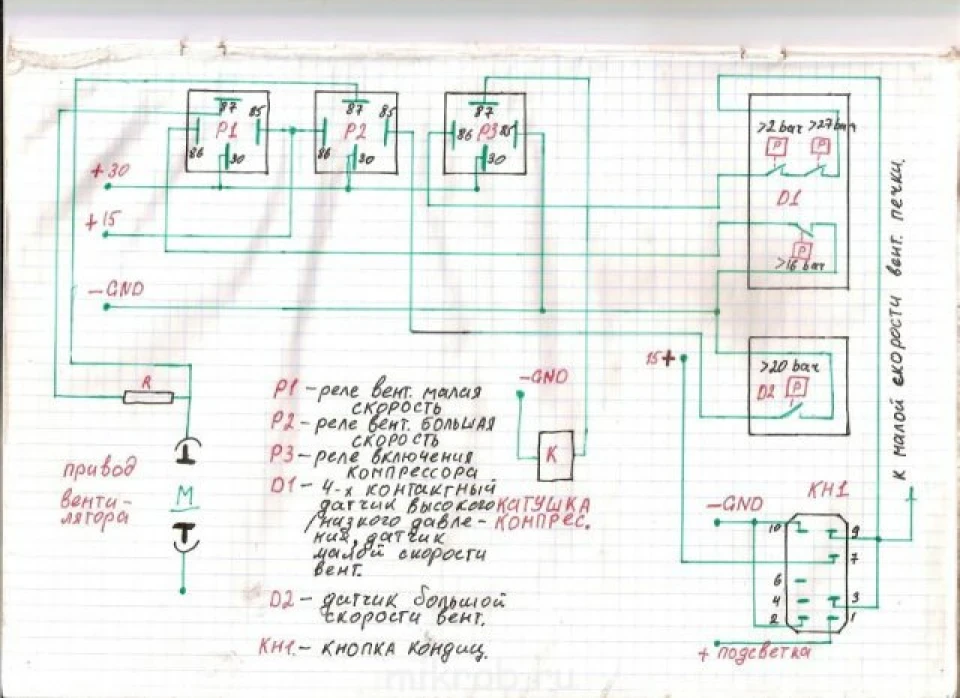 87 85 86 30 P1
87 85 86 30 P2
87 85 86 30 P3
+30
+15
-GND
>2 bar >27 bar
P P
D1
P
>16 bar
15+
>20 bar
D2 P
к малой скорости вент. печки.
R
привод
венти-
лятора
M
P1 – реле вент. малая
скорость
P2 – реле вент. большая
скорость
P3 – реле включения
компрессора
D1 – 4-х контактный
датчик высокого
/низкого давле-
ния, датчик
малой скорости
вент.
D2 – датчик большой
скорости вент.
КН1. – кнопка кондиц.
-GND
K
катушка
компрес.
-GND
КН1
10 9
7
6
4 3
2 1
+ подсветка